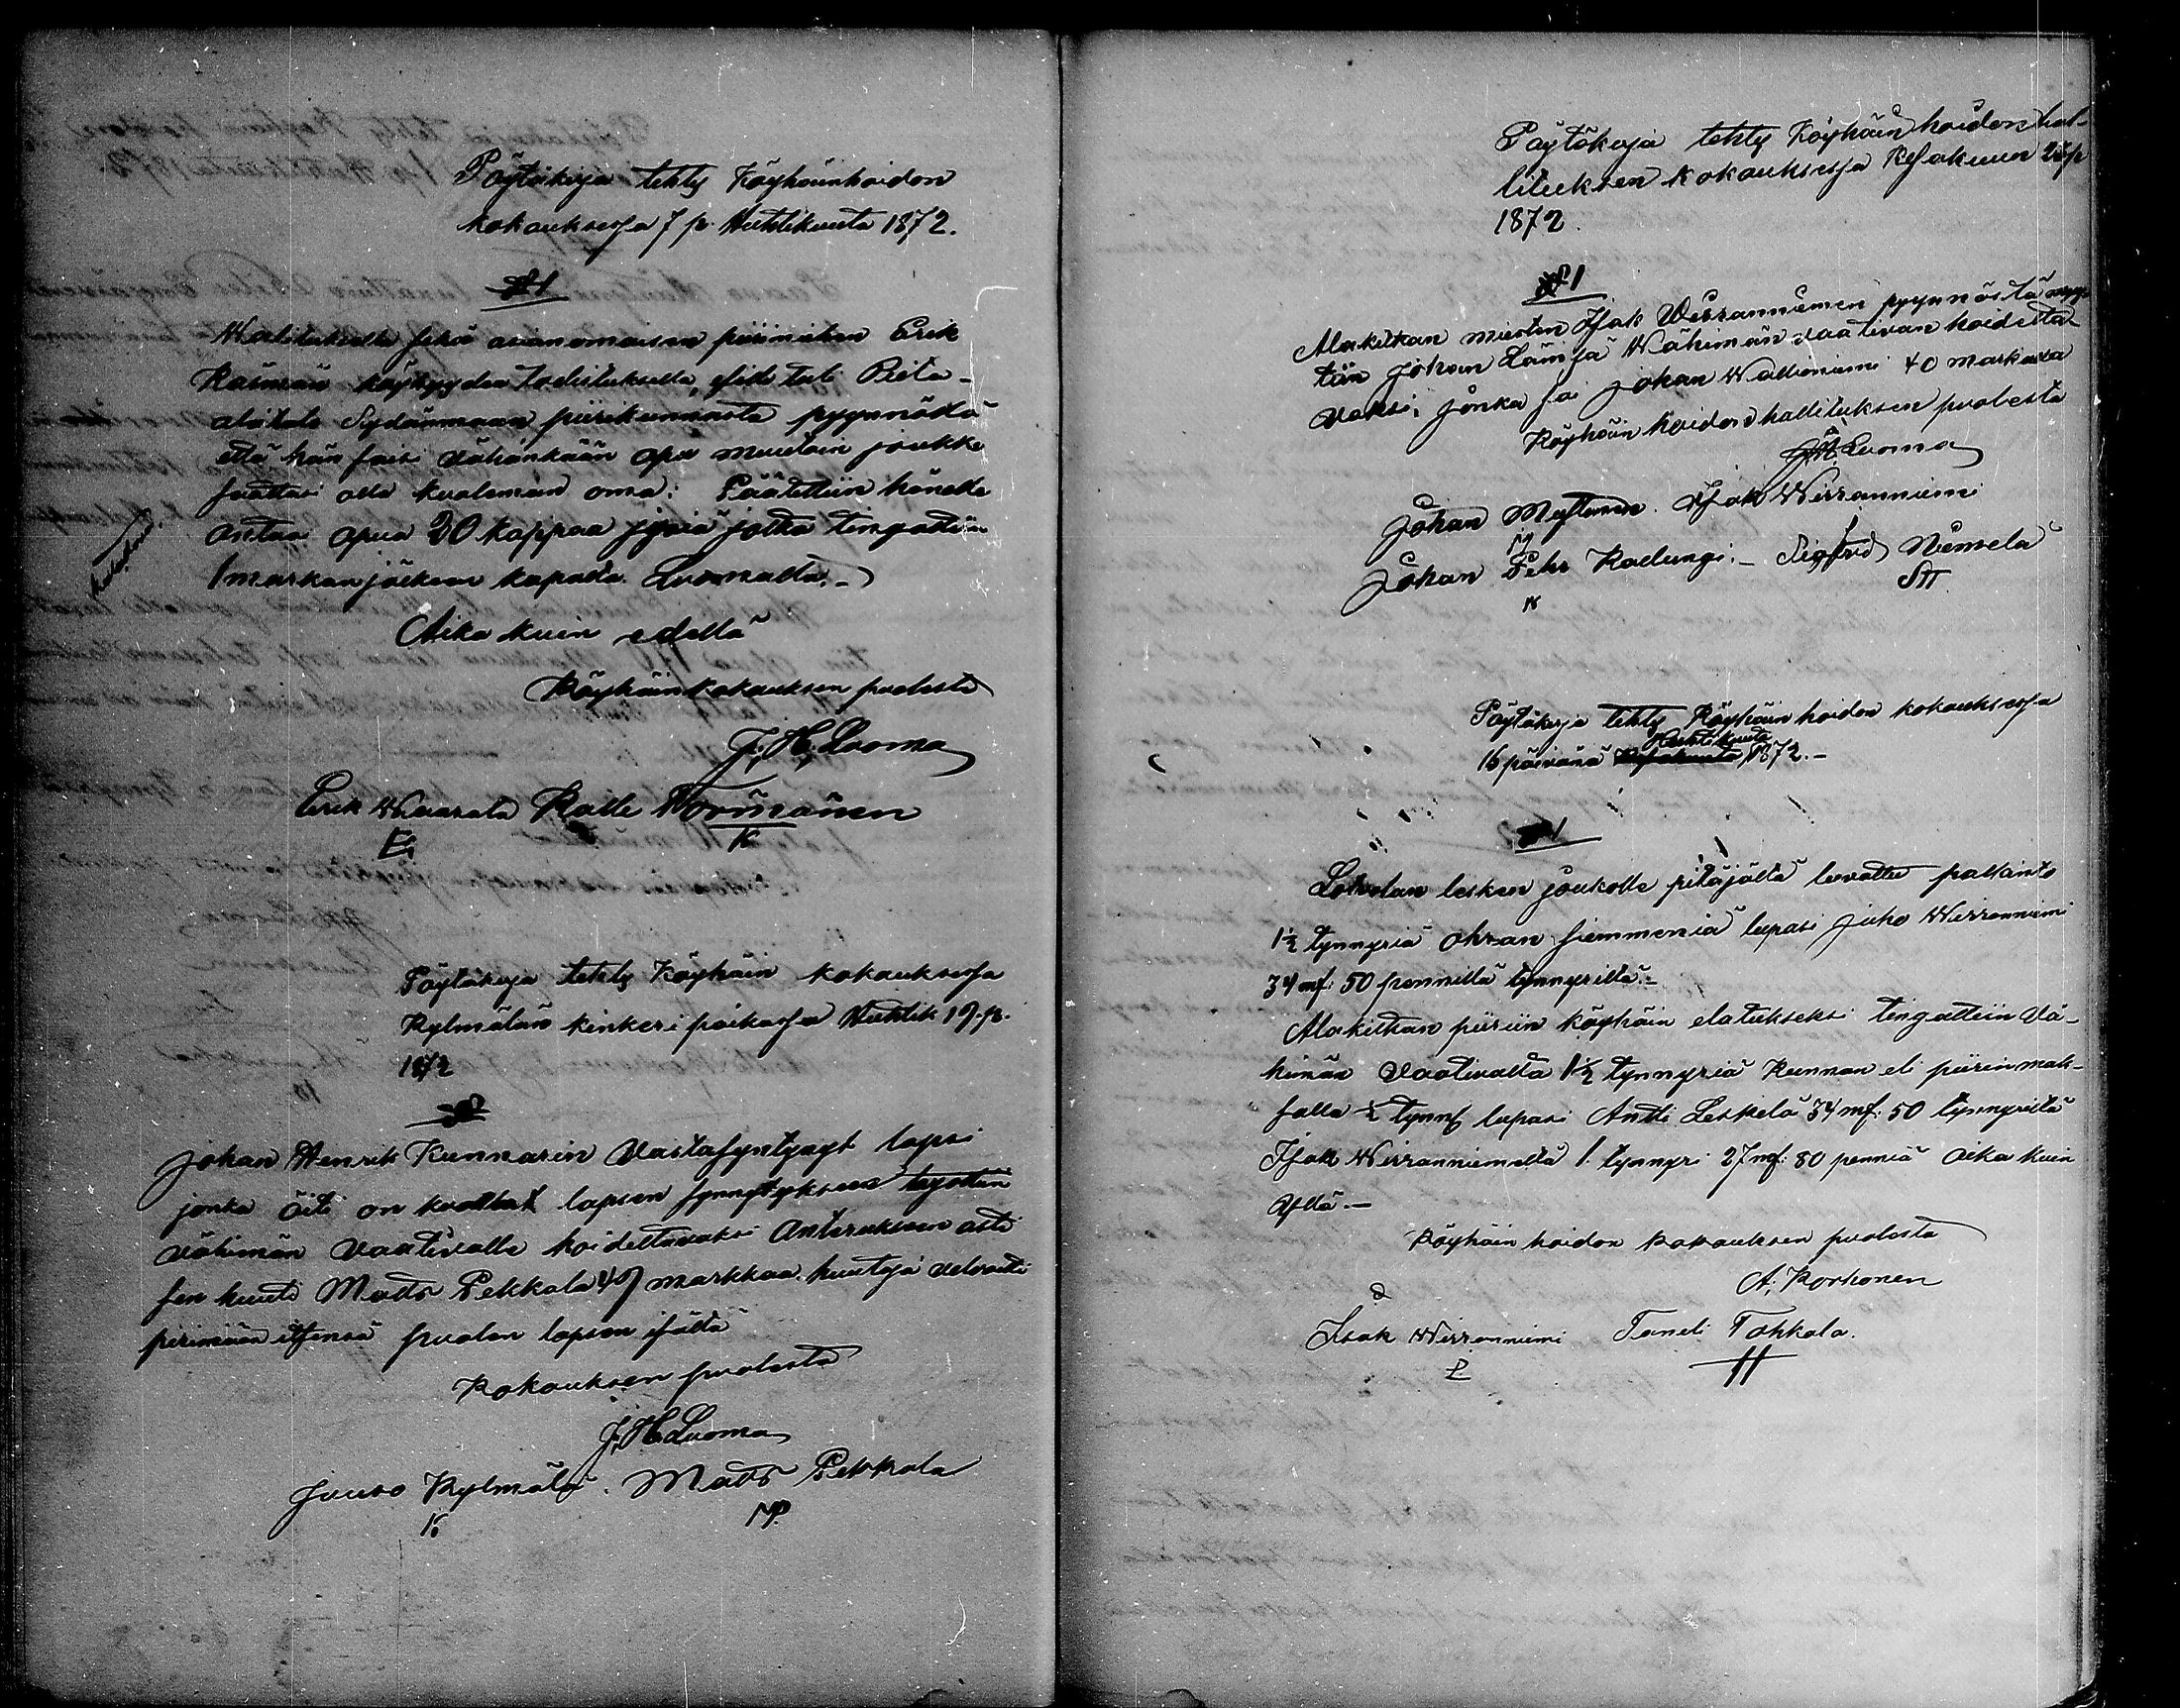 Pöytäkirja tehty Köyhäinhoidon
kokouksessa 7 p. Huhtikuuta 1872.
§ 1
Walituksella sekä asianomaisen piirimiehen Erik
köyhyyden todistuksella, esitti Pieta
alatalo Sydänmaan piirikunnasta pyynnöstä
että hän saisi vähänkään apu muutoin joukko
kuoleman oma: Päätettiin hänelle
antaa apua 20 kappaa jyviä jotka tingattiin
1 markan jälkeen kapalta Luomalta.
Aika kuin edellä
Köyhäinkokouksen puolesta
J. H. Luoma
Erik Waarala Kalle Wormänen
E K
Pöytäkirja tehty Köyhäin kokouksessa
Kylmälän kinkeri paikassa Huhtik 19. p.
1872
§
Johan Henrik Kunnarin vastasyntynyt lapsi
jonka äiti on kuollut lapsen synnytykseen
vähimän vaativalle hoidettavaksi Anteruksen asti
sen huusi Matts Pekkala 49 markkaa huutaja velvoitti
perimään itsensä puolen lapsen isältä
Kokouksen puolesta
J. H. Luoma
Juuso Kylmälä. Matts Pekkala
K MP.
Pöytäkirja tehty Köyhäinhoidon hal-
lituksen kokouksessa Kesäkuun
1872.
§ 1
Alakitkan miesten Isak Wirranniemen pyynnöstä
tiin Johan vähimän vaativan hoidetta-
vaksi, jonka sai Johan 40 markasta
Köyhäin hoidon hallituksen puolesta
J. H. Luoma
Johan Myllynen. Isak Wirranniemi
M
Johan Pehr Kallungi. Sigfrid Niemelä
K
Pöytäkirja tehty Köyhäin hoidon kokouksessa
Huhtikuuta
16 päivänä Kesäkuuta 1872.
§ 1
Lohelan lesken joukolle pitäjältä luvattu palkinto
1½ tynnyriä ohran siemmeniä lupasi Juho Wirranniemi
34 mf: 50 pennillä tynnyriltä.
Alakitkan piiriin köyhäin elatukseksi tingattiin vä-
himän vaativalta 1½ tynnyriä Kunnan eli piirin mak-
salla ½ tynnf lupasi Antti Leskelä 34 mf: 50 tynnyriltä
Isak Wirranniemeltä 1. tynnyri 27 mf: 80 penniä Aika kuin
yllä.
Köyhäin hoidon kokouksen puolesta
A. Korhonen
Isak Wirranniemi Taneli Tohkala.